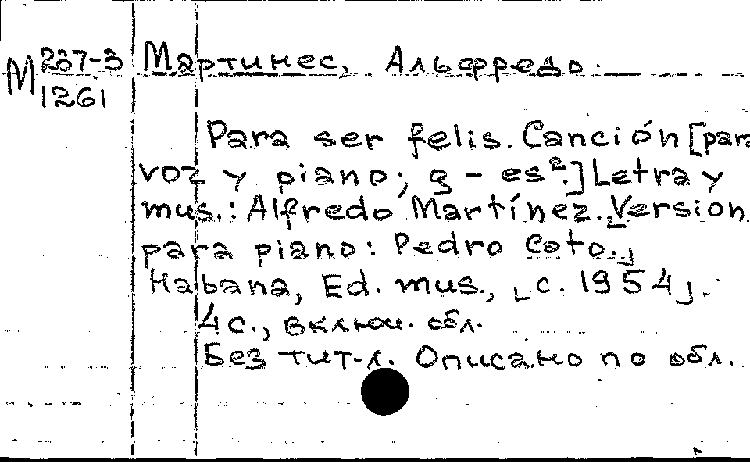 М 237-3 Мартинес, Альфредо.
1261
Para ser felis. Canción [para
voz y piano; g - es².] Letra y
mus.: Alfredo Martínez. [Version
para piano: Pedro Coto.]
Habana, Ed. mus., [c. 1954].
4 с., включ. обл.
Без тит. л. Описано по обл.